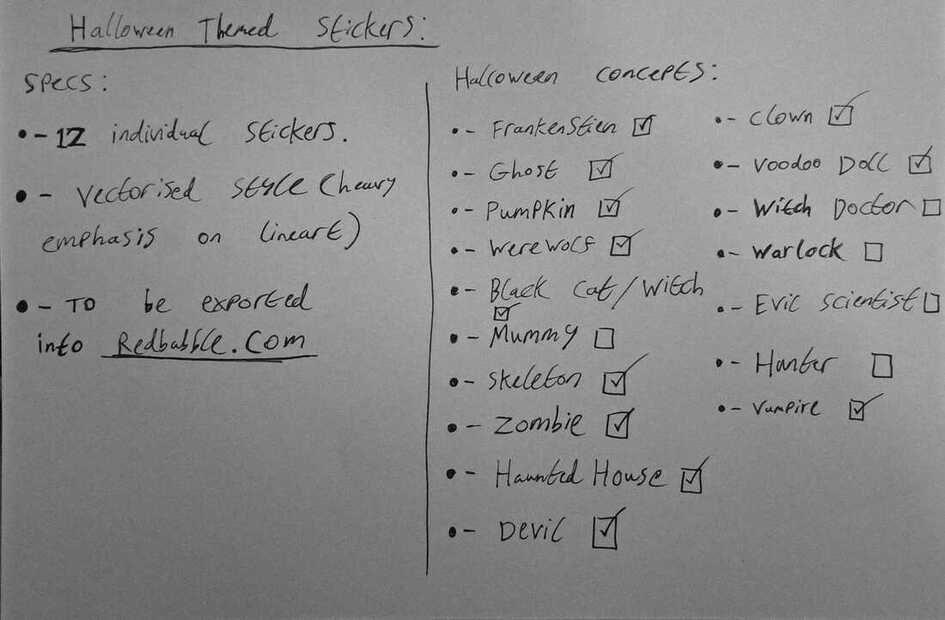 Halloween Themed Stickers:
Specs:
- 12 individual stickers.
- Vectorised style (heavy
emphasis on lineart)
- To be exported
into Redbabble.com
Halloween concepts:
- Frankenstien
- Ghost
- Pumpkin
- Werewolf
- Black cat/witch
- Mummy
- Skeleton
- Zombie
- Haunted House
- Devil
- Clown
- Voodoo Doll
- Witch Doctor
- Warlock
- Evil scientist
- Hunter
- Vampire